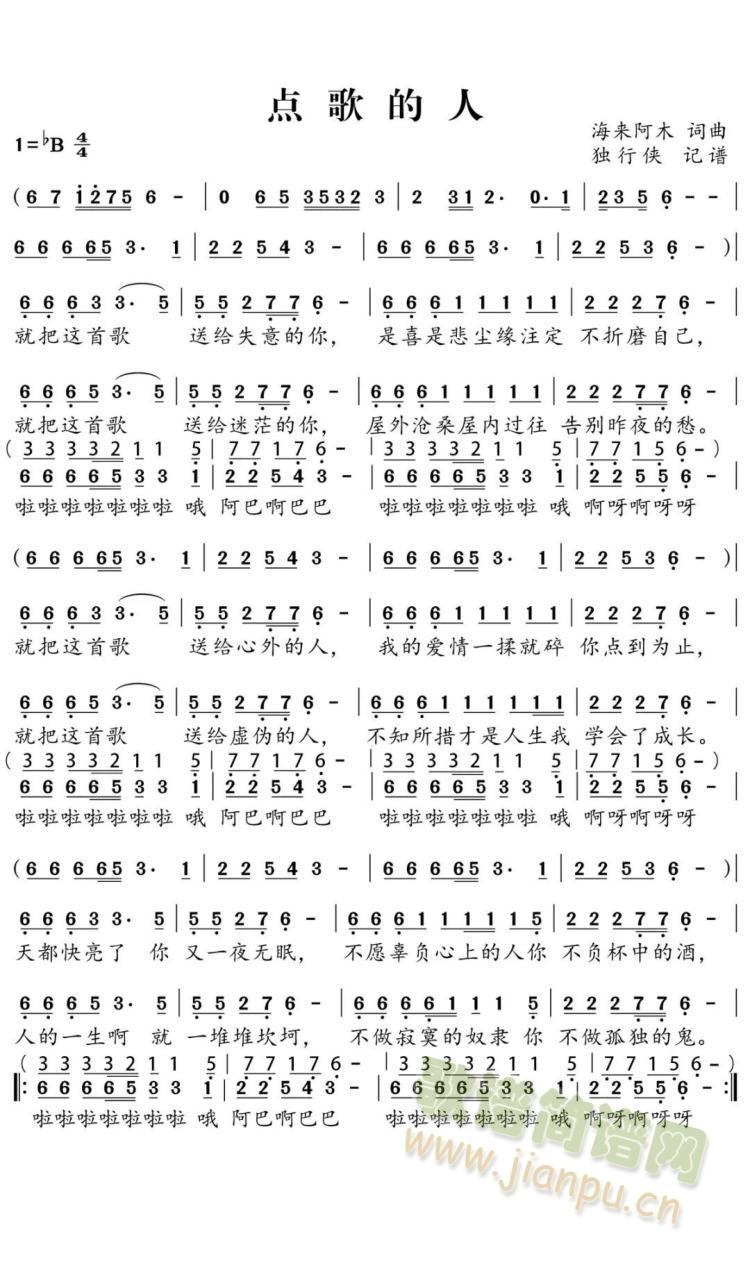 点歌的人
海来阿木 词曲
1=♭B 4/4
独行侠 记谱
(6 7 1275 6 - | 0 6 5 3532 3 | 2 31 2· 0·1 | 235 6 - - |
6 6 6 65 3· 1 | 2 2 5 4 3 - | 6 6 6 65 3· 1 | 2 2 5 3 6 - )|
6 6 6 3 3· 5 | 5 5 2 7 7 6 - | 6 6 6 1 1 1 1 1 | 2 2 2 7 6 - |
就把这首歌 送给失意的你, 是喜是悲尘缘注定 不折磨自己,
6 6 6 5 3· 5 | 5 5 2 7 7 6 - | 6 6 6 1 1 1 1 1 | 2 2 2 7 6 - |
就把这首歌 送给迷茫的你, 屋外沧桑屋内过往 告别昨夜的愁。
( 3 3 3 3 2 1 1 5 | 7 7 1 7 6 - | 3 3 3 3 2 1 1 5 | 7 7 1 5 6 - )
6 6 6 6 5 3 3 1 | 2 2 5 4 3 - | 6 6 6 6 5 3 3 1 | 2 2 5 5 6 - |
啦啦啦啦啦啦啦 哦 阿巴啊巴巴 啦啦啦啦啦啦啦 哦 啊呀啊呀呀
(6 6 6 65 3· 1 | 2 2 5 4 3 - | 6 6 6 65 3· 1 | 2 2 5 3 6 - )|
6 6 6 3 3· 5 | 5 5 2 7 7 6 - | 6 6 6 1 1 1 1 1 | 2 2 2 7 6 - |
就把这首歌 送给心外的人, 我的爱情一揉就碎 你点到为止,
6 6 6 5 3· 5 | 5 5 2 7 7 6 - | 6 6 6 1 1 1 1 1 1 | 2 2 2 7 6 - |
就把这首歌 送给虚伪的人, 不知所措才是人生我 学会了成长。
( 3 3 3 3 2 1 1 5 | 7 7 1 7 6 - | 3 3 3 3 2 1 1 5 | 7 7 1 5 6 - )
6 6 6 6 5 3 3 1 | 2 2 5 4 3 - | 6 6 6 6 5 3 3 1 | 2 2 5 5 6 - |
啦啦啦啦啦啦啦 哦 阿巴啊巴巴 啦啦啦啦啦啦啦 哦 啊呀啊呀呀
(6 6 6 65 3· 1 | 2 2 5 4 3 - | 6 6 6 65 3· 1 | 2 2 5 3 6 - )|
6 6 6 3 3· 5 | 5 5 2 7 6 - | 6 6 6 1 1 1 1 1 5 | 2 2 2 7 6 - |
天都快亮了 你 又一夜无眠, 不愿辜负心上的人你 不负杯中的酒,
6 6 6 3 3· 5 | 5 5 2 7 6 - | 6 6 6 6 1 1 1 5 | 2 2 2 7 6 - |
人的一生啊 就 一堆堆坎坷, 不做寂寞的奴隶 你 不做孤独的鬼。
( 3 3 3 3 2 1 1 5 | 7 7 1 7 6 - | 3 3 3 3 2 1 1 5 | 7 7 1 5 6 - )
‖: 6 6 6 6 5 3 3 1 | 2 2 5 4 3 - | 6 6 6 6 5 3 3 1 | 2 2 5 5 6 - :‖
啦啦啦啦啦啦啦 哦 阿巴啊巴巴 啦啦啦啦啦啦啦 哦 啊呀啊呀呀
歌谱简谱网
www.jianpu.cn